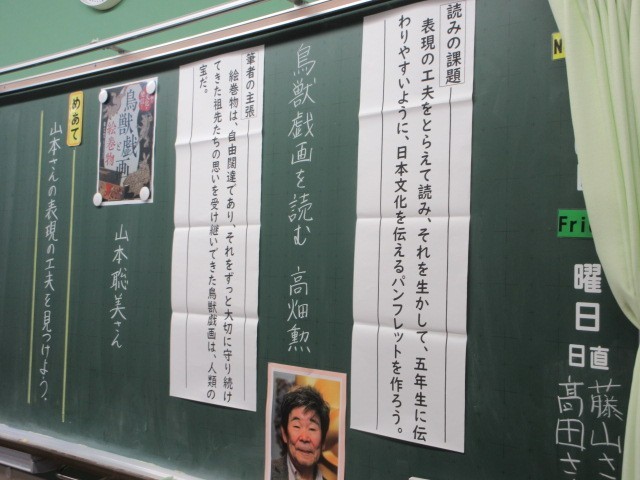 Fri
曜日
日直
藤山さ
髙田さ
読みの課題
表現の工夫をとらえて読み、それを生かして、五年生に伝
わりやすいように、日本文化を伝えるパンフレットを作ろう。
鳥獣戯画を読む　高畑勲
筆者の主張
絵巻物は、自由闊達であり、それをずっと大切に守り続け
てきた祖先たちの思いを受け継いできた鳥獣戯画は、人類の
宝だ。
鳥獣戯画
と
絵巻物
山本聡美さん
めあて
山本さんの表現の工夫を見つけよう。